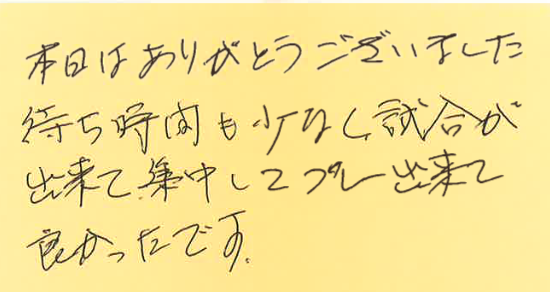 本日はありがとうございました
待ち時間も少なく試合が
出来て集中してプレー出来て
良かったです.